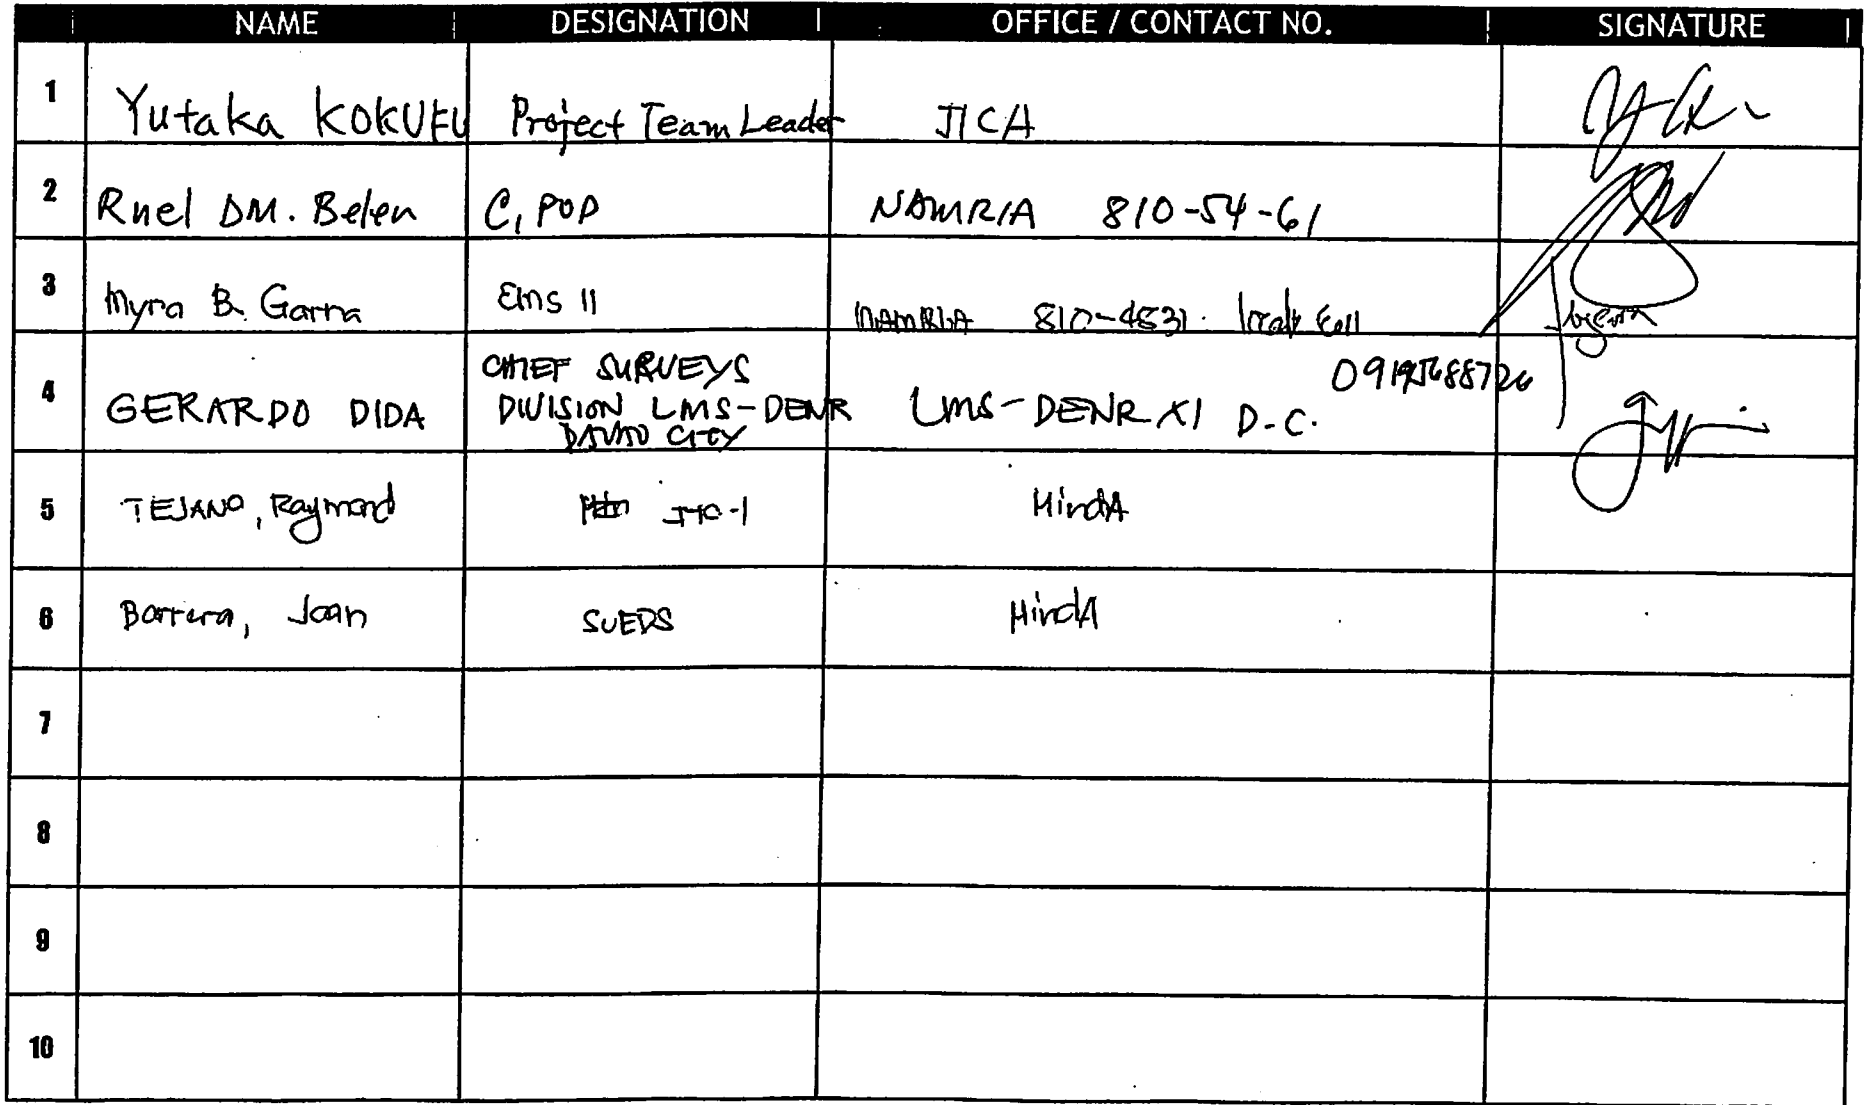 NAME DESIGNATION OFFICE / CONTACT NO. SIGNATURE
1 Yutaka KOKUFU Project Team Leader JICA
2 Ruel DM. Belen C, POD NAMRIA 810-54-61
3 Myra B. Garra EMS II NAMRIA 810-4831
CHIEF SURVEYS
4 GERARDO DIDA DIVISION LMS-DENR LMS-DENR XI D.C.
DAVAO CITY
5 TEJANO, Raymond MindA
6 Barrera, Joan SUEDS MindA
7
8
9
10